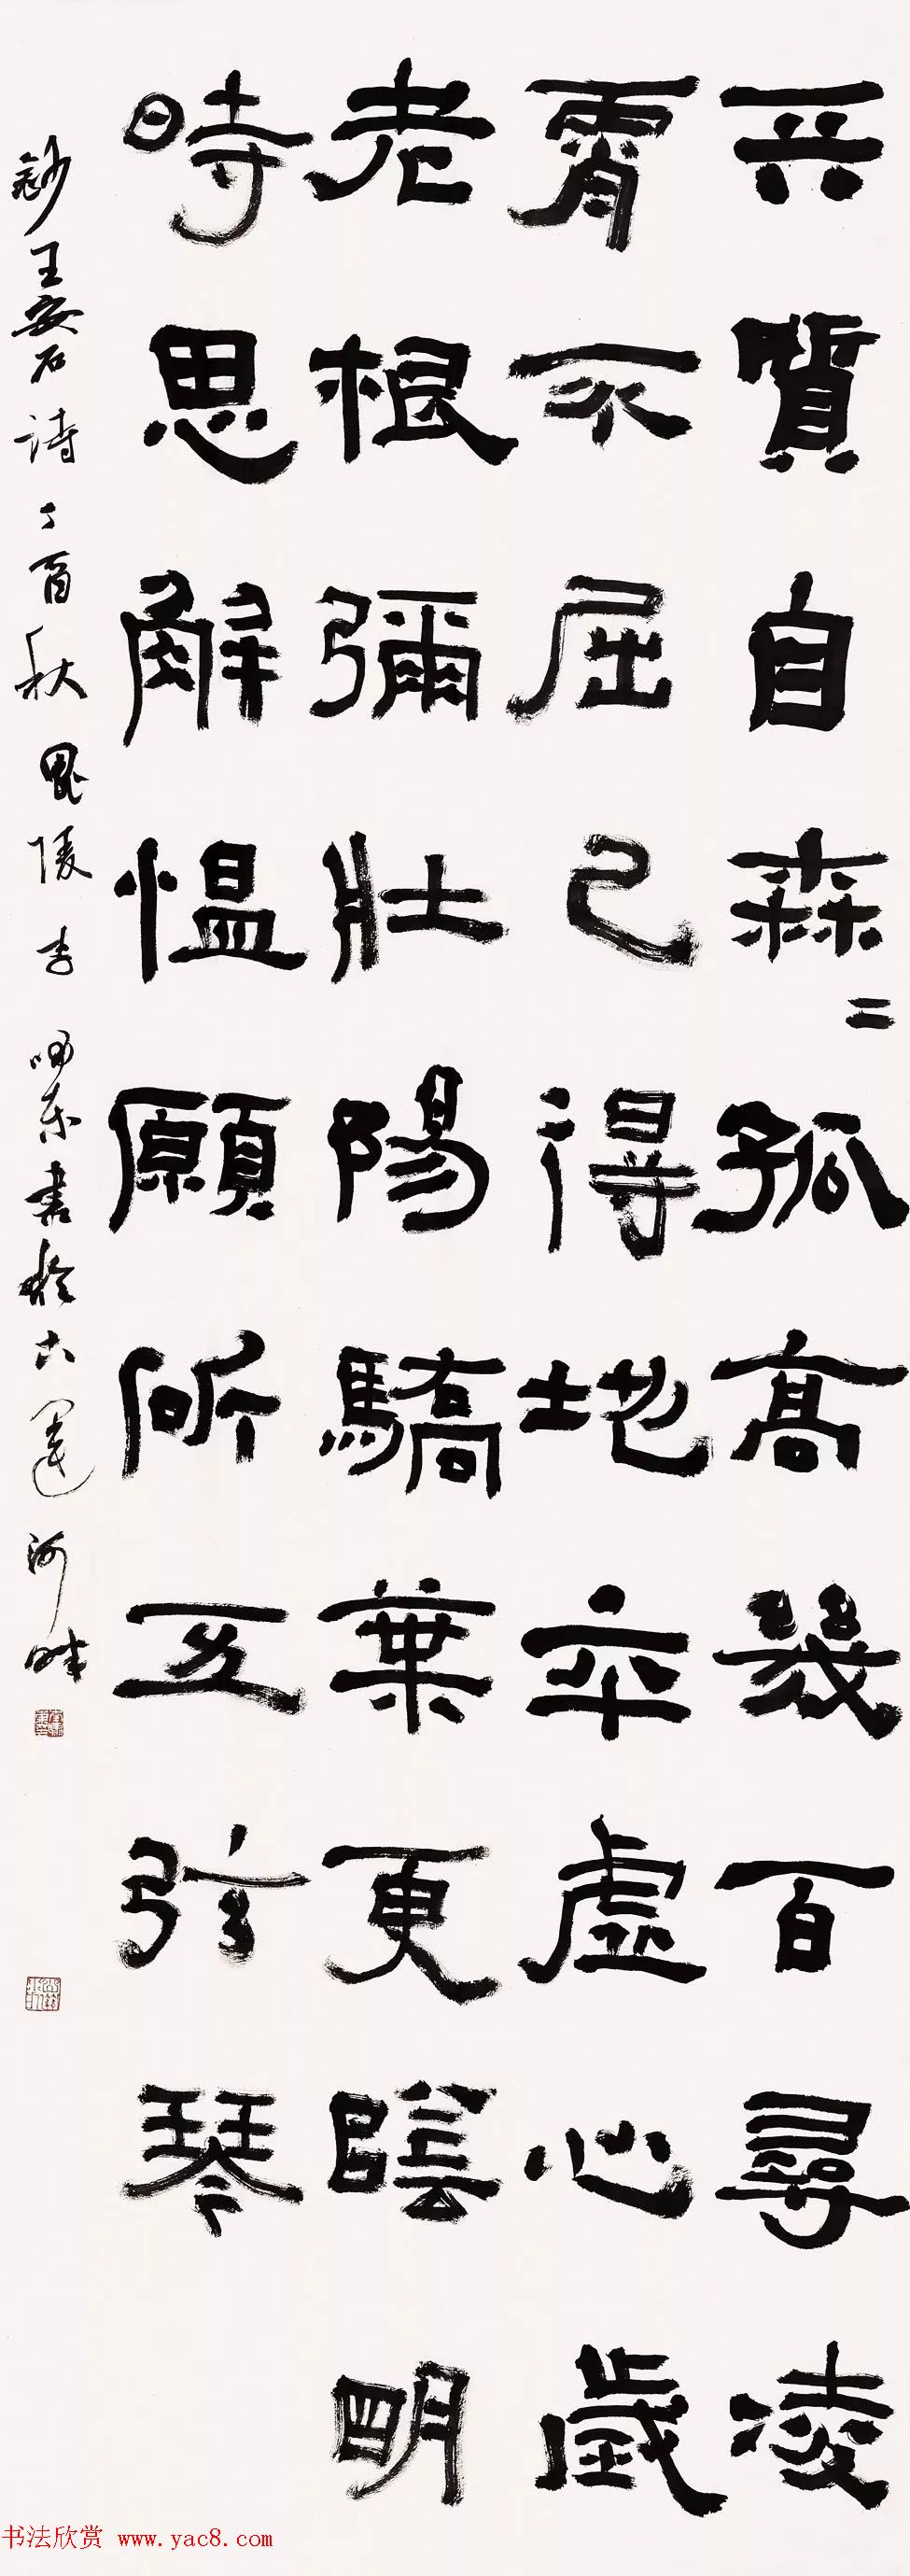 天質自森〻孤高幾百尋凌
霄不屈己得地本虛心歲
老根彌壯陽驕葉更陰明
時思解愠願斫五弦琴
鈔王安石詩丁酉秋毘陵李嘯东書於古運河畔
书法欣赏 www.yac8.com